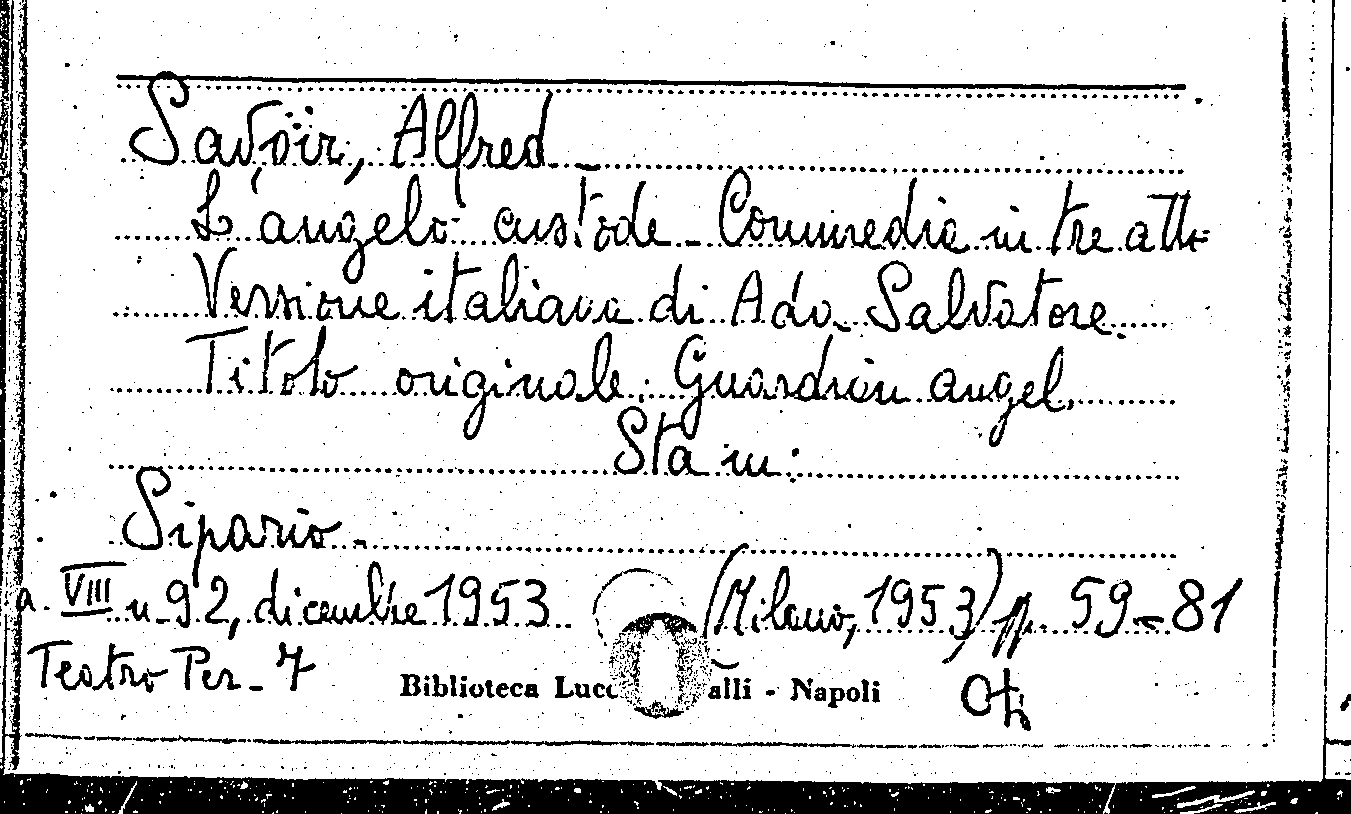 Savoir, Alfred -
L'angelo custode - Commedia in tre atti
Versione italiana di Ada Salvatore.
Titolo originale: Guardian angel.
Sta in:
Sipario -
a. VIII n. 92, dicembre 1953 (Milano, 1953) pp. 59-81
Teatro Per. 7
Biblioteca Lucc alli - Napoli